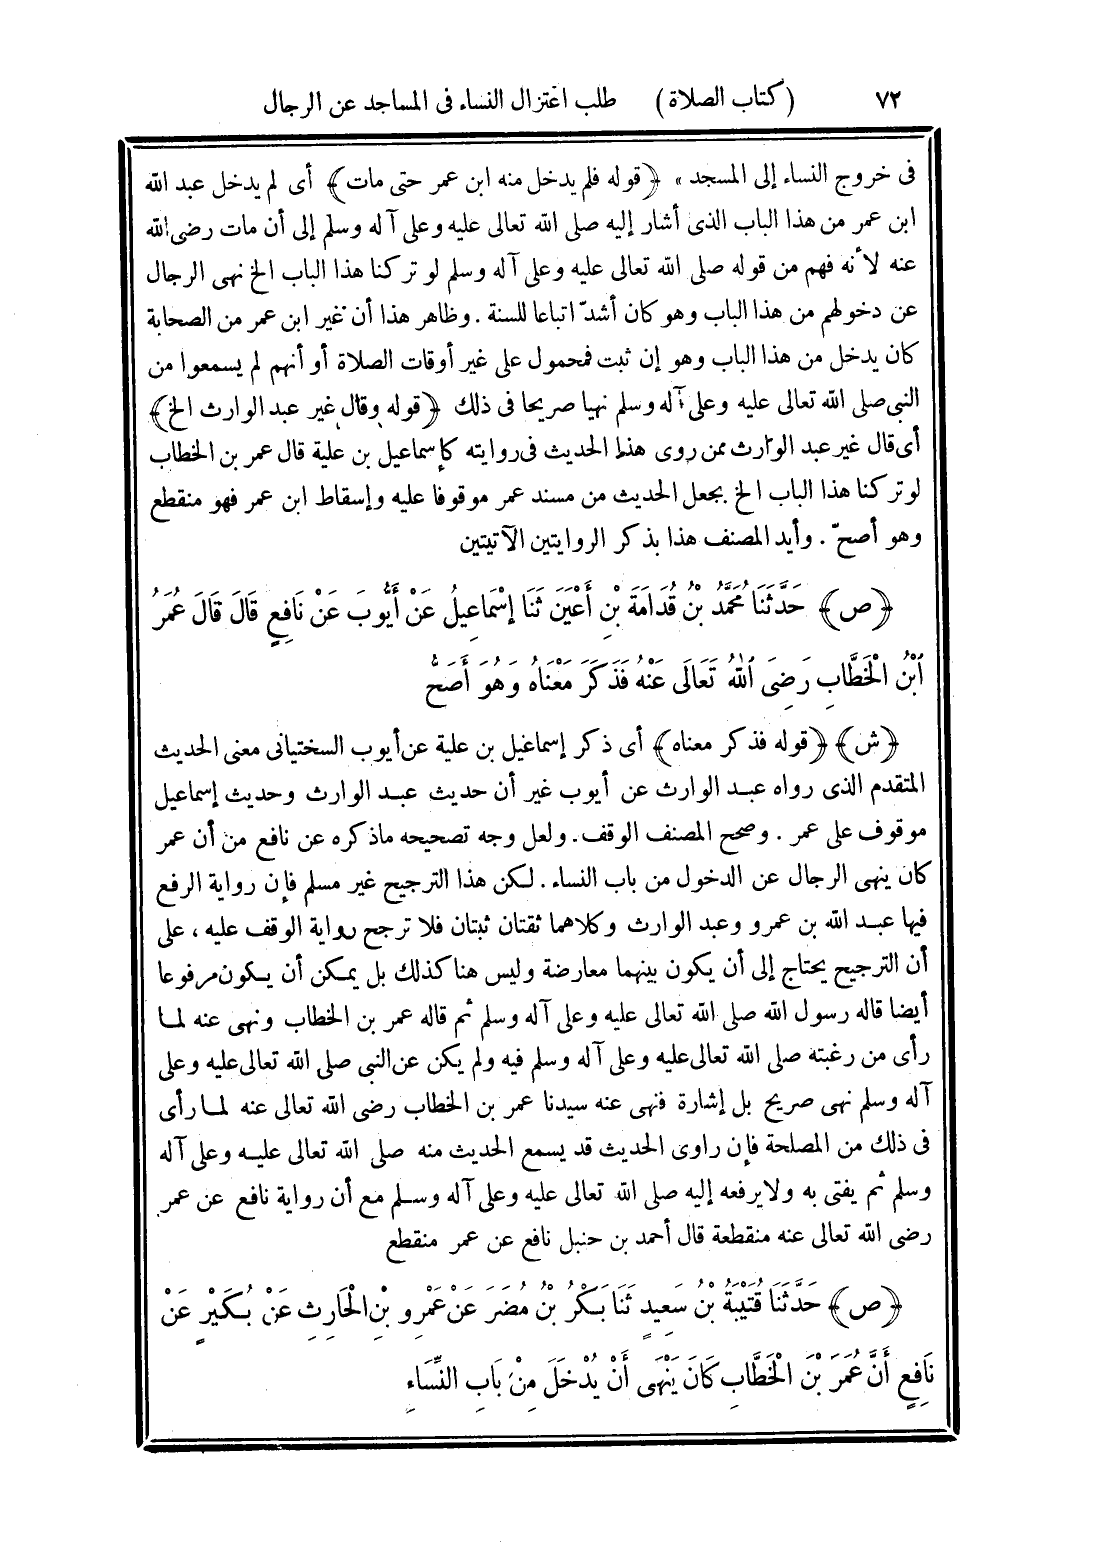 ٧٢ (كتاب الصلاة) طلب اعتزال النساء فى المساجد عن الرجال
فى خروج النساء إلى المسجد » ﴿قوله فلم يدخل منه ابن عمر حتى مات﴾ أى لم يدخل عبد الله
ابن عمر من هذا الباب الذى أشار إليه صلى الله تعالى عليه وعلى آله وسلم إلى أن مات رضى الله
عنه لأنه فهم من قوله صلى الله تعالى عليه وعلى آله وسلم لو تركنا هذا الباب الخ نهى الرجال
عن دخولهم من هذا الباب وهو كان أشدّ اتباعا للسنة . وظاهر هذا أن غير ابن عمر من الصحابة
كان يدخل من هذا الباب وهو إن ثبت فمحمول على غير أوقات الصلاة أو أنهم لم يسمعوا من
النبى صلى الله تعالى عليه وعلى آله وسلم نهيا صريحا فى ذلك ﴿قوله وقال غير عبد الوارث الخ﴾
أى قال غير عبد الوارث ممن روى هذا الحديث فى روايته كإسماعيل بن علية قال عمر بن الخطاب
لو تركنا هذا الباب الخ بجعل الحديث من مسند عمر موقوفا عليه وإسقاط ابن عمر فهو منقطع
وهو أصحّ . وأيد المصنف هذا بذكر الروايتين الآتيتين
﴿ص﴾ حَدَّثَنَا مُحَمَّدُ بْنُ قُدَامَةَ بْنِ أَعْيَنَ ثَنَا إِسْمَاعِيلُ عَنْ أَيُّوبَ عَنْ نَافِعٍ قَالَ قَالَ عُمَرُ
ابْنُ الْخَطَّابِ رَضِىَ اللهُ تَعَالَى عَنْهُ فَذَكَرَ مَعْنَاهُ وَهُوَ أَصَحُّ
﴿ش﴾ ﴿قوله فذكر معناه﴾ أى ذكر إسماعيل بن علية عن أيوب السختيانى معنى الحديث
المتقدم الذى رواه عبد الوارث عن أيوب غير أن حديث عبد الوارث وحديث إسماعيل
موقوف على عمر . وصحح المصنف الوقف . ولعل وجه تصحيحه ماذكره عن نافع من أن عمر
كان ينهى الرجال عن الدخول من باب النساء . لكن هذا الترجيح غير مسلم فإن رواية الرفع
فيها عبد الله بن عمرو وعبد الوارث وكلاهما ثقتان ثبتان فلا ترجح رواية الوقف عليه ، على
أن الترجيح يحتاج إلى أن يكون بينهما معارضة وليس هنا كذلك بل يمكن أن يكون مرفوعا
أيضا قاله رسول الله صلى الله تعالى عليه وعلى آله وسلم ثم قاله عمر بن الخطاب ونهى عنه لما
رأى من رغبته صلى الله تعالى عليه وعلى آله وسلم فيه ولم يكن عن النبى صلى الله تعالى عليه وعلى
آله وسلم نهى صريح بل إشارة فنهى عنه سيدنا عمر بن الخطاب رضى الله تعالى عنه لما رأى
فى ذلك من المصلحة فإن راوى الحديث قد يسمع الحديث منه صلى الله تعالى عليه وعلى آله
وسلم ثم يفتى به ولا يرفعه إليه صلى الله تعالى عليه وعلى آله وسلم مع أن رواية نافع عن عمر
رضى الله تعالى عنه منقطعة قال أحمد بن حنبل نافع عن عمر منقطع
﴿ص﴾ حَدَّثَنَا قُتَيْبَةُ بْنُ سَعِيدٍ ثَنَا بَكْرُ بْنُ مُضَرَ عَنْ عَمْرِو بْنِ الْحَارِثِ عَنْ بُكَيْرٍ عَنْ
نَافِعٍ أَنَّ عُمَرَ بْنَ الْخَطَّابِ كَانَ يَنْهَى أَنْ يُدْخَلَ مِنْ بَابِ النِّسَاءِ